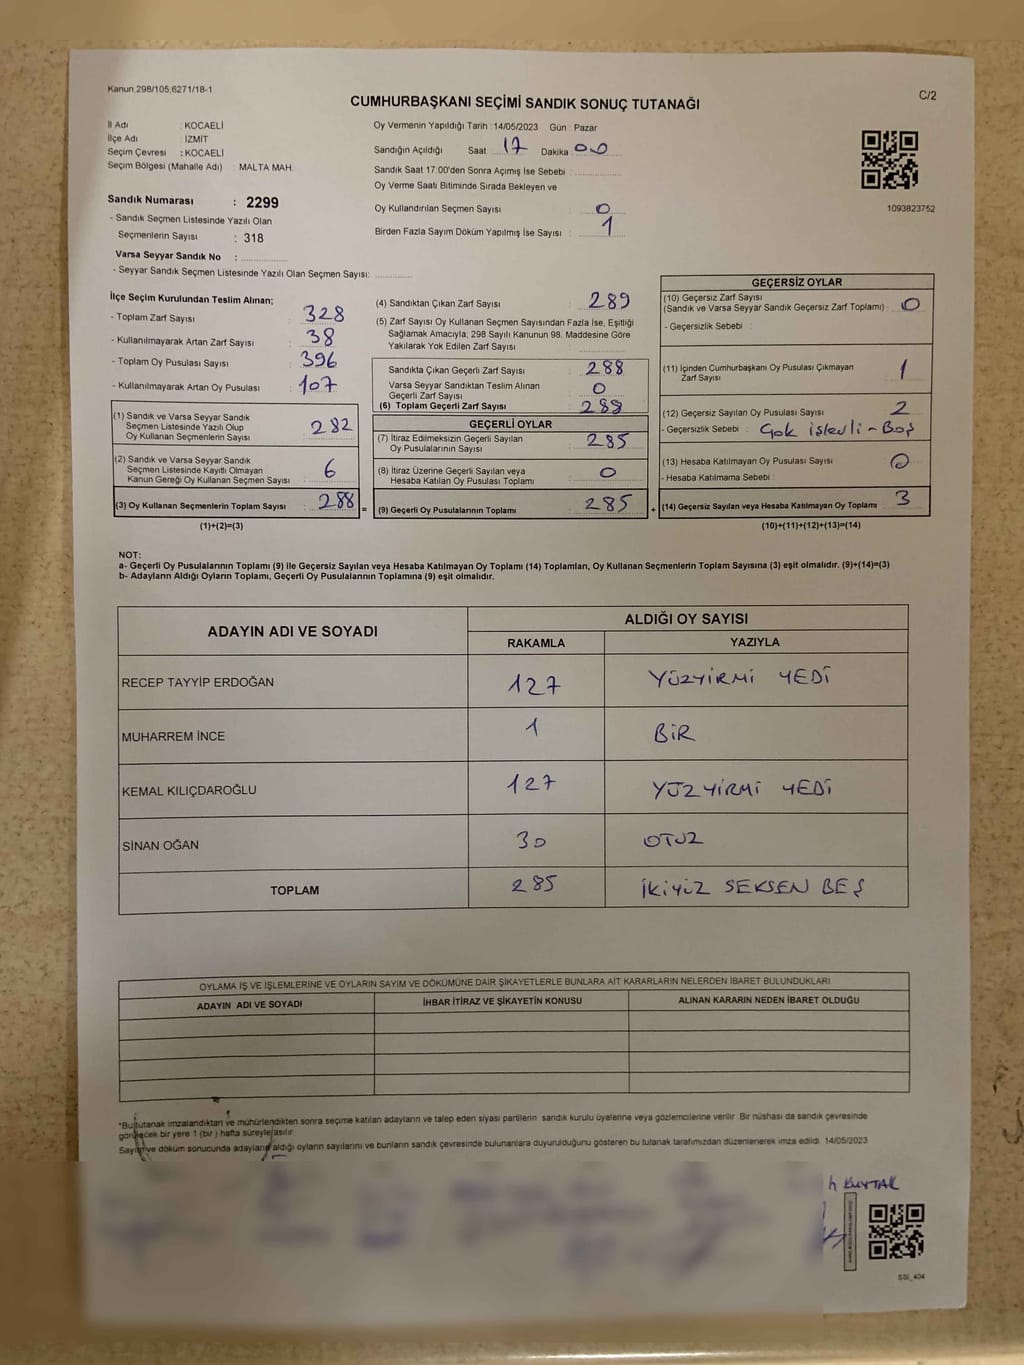 Kanun 298/105,6271/18-1
C/2
CUMHURBAŞKANI SEÇİMİ SANDIK SONUÇ TUTANAĞI
İl Adı : KOCAELİ
İlçe Adı : İZMİT
Seçim Çevresi : KOCAELİ
Seçim Bölgesi (Mahalle Adı) : MALTA MAH.
Sandık Numarası : 2299
- Sandık Seçmen Listesinde Yazılı Olan
Seçmenlerin Sayısı : 318
Varsa Seyyar Sandık No :
- Seyyar Sandık Seçmen Listesinde Yazılı Olan Seçmen Sayısı:
Oy Vermenin Yapıldığı Tarih : 14/05/2023 Gün : Pazar
Sandığın Açıldığı Saat 17 Dakika 00
Sandık Saat 17:00'den Sonra Açımış İse Sebebi :
Oy Verme Saati Bitiminde Sırada Bekleyen ve
Oy Kullandırılan Seçmen Sayısı : 0
Birden Fazla Sayım Döküm Yapılmış İse Sayısı : 1
1093823752
İlçe Seçim Kurulundan Teslim Alınan;
- Toplam Zarf Sayısı : 328
- Kullanılmayarak Artan Zarf Sayısı : 38
- Toplam Oy Pusulası Sayısı : 396
- Kullanılmayarak Artan Oy Pusulası : 107
(1) Sandık ve Varsa Seyyar Sandık
Seçmen Listesinde Yazılı Olup
Oy Kullanan Seçmenlerin Sayısı 282
(2) Sandık ve Varsa Seyyar Sandık
Seçmen Listesinde Kayıtlı Olmayan
Kanun Gereği Oy Kullanan Seçmen Sayısı : 6
(3) Oy Kullanan Seçmenlerin Toplam Sayısı : 288 =
(1)+(2)=(3)
(4) Sandıktan Çıkan Zarf Sayısı : 289
(5) Zarf Sayısı Oy Kullanan Seçmen Sayısından Fazla İse, Eşitliği
Sağlamak Amacıyla, 298 Sayılı Kanunun 98. Maddesine Göre
Yakılarak Yok Edilen Zarf Sayısı :
Sandıkta Çıkan Geçerli Zarf Sayısı : 288
Varsa Seyyar Sandıktan Teslim Alınan
Geçerli Zarf Sayısı : 0
(6) Toplam Geçerli Zarf Sayısı : 288
GEÇERLİ OYLAR
(7) İtiraz Edilmeksizin Geçerli Sayılan
Oy Pusulalarının Sayısı : 285
(8) İtiraz Üzerine Geçerli Sayılan veya
Hesaba Katılan Oy Pusulası Toplamı : 0
(9) Geçerli Oy Pusulalarının Toplamı : 285 +
GEÇERSİZ OYLAR
(10) Geçersiz Zarf Sayısı
(Sandık ve Varsa Seyyar Sandık Geçersiz Zarf Toplamı) : 0
- Geçersizlik Sebebi :
(11) İçinden Cumhurbaşkanı Oy Pusulası Çıkmayan
Zarf Sayısı : 1
(12) Geçersiz Sayılan Oy Pusulası Sayısı : 2
- Geçersizlik Sebebi : Çok işlevli - Boş
(13) Hesaba Katılmayan Oy Pusulası Sayısı : 0
- Hesaba Katılmama Sebebi :
(14) Geçersiz Sayılan veya Hesaba Katılmayan Oy Toplamı : 3
(10)+(11)+(12)+(13)=(14)
NOT:
a- Geçerli Oy Pusulalarının Toplamı (9) ile Geçersiz Sayılan veya Hesaba Katılmayan Oy Toplamı (14) Toplamları, Oy Kullanan Seçmenlerin Toplam Sayısına (3) eşit olmalıdır. (9)+(14)=(3)
b- Adayların Aldığı Oyların Toplamı, Geçerli Oy Pusulalarının Toplamına (9) eşit olmalıdır.
ADAYIN ADI VE SOYADI
ALDIĞI OY SAYISI
RAKAMLA YAZIYLA
RECEP TAYYİP ERDOĞAN 127 YÜZYİRMİ YEDİ
MUHARREM İNCE 1 BİR
KEMAL KILIÇDAROĞLU 127 YÜZYİRMİ YEDİ
SİNAN OĞAN 30 OTUZ
TOPLAM 285 İKİYÜZ SEKSEN BEŞ
OYLAMA İŞ VE İŞLEMLERİNE VE OYLARIN SAYIM VE DÖKÜMÜNE DAİR ŞİKAYETLERLE BUNLARA AİT KARARLARIN NELERDEN İBARET BULUNDUKLARI
ADAYIN ADI VE SOYADI İHBAR İTİRAZ VE ŞİKAYETİN KONUSU ALINAN KARARIN NEDEN İBARET OLDUĞU
*Bu tutanak imzalandıktan ve mühürlendikten sonra seçime katılan adayların ve talep eden siyasi partilerin sandık kurulu üyelerine veya gözlemcilerine verilir. Bir nüshası da sandık çevresinde
görülecek bir yere 1 (bir) hafta süreyle asılır.
Sayım ve döküm sonucunda adayların aldığı oyların sayılarını ve bunların sandık çevresinde bulunanlara duyurulduğunu gösteren bu tutanak tarafımızdan düzenlenerek imza edildi. 14/05/2023
SSI_404